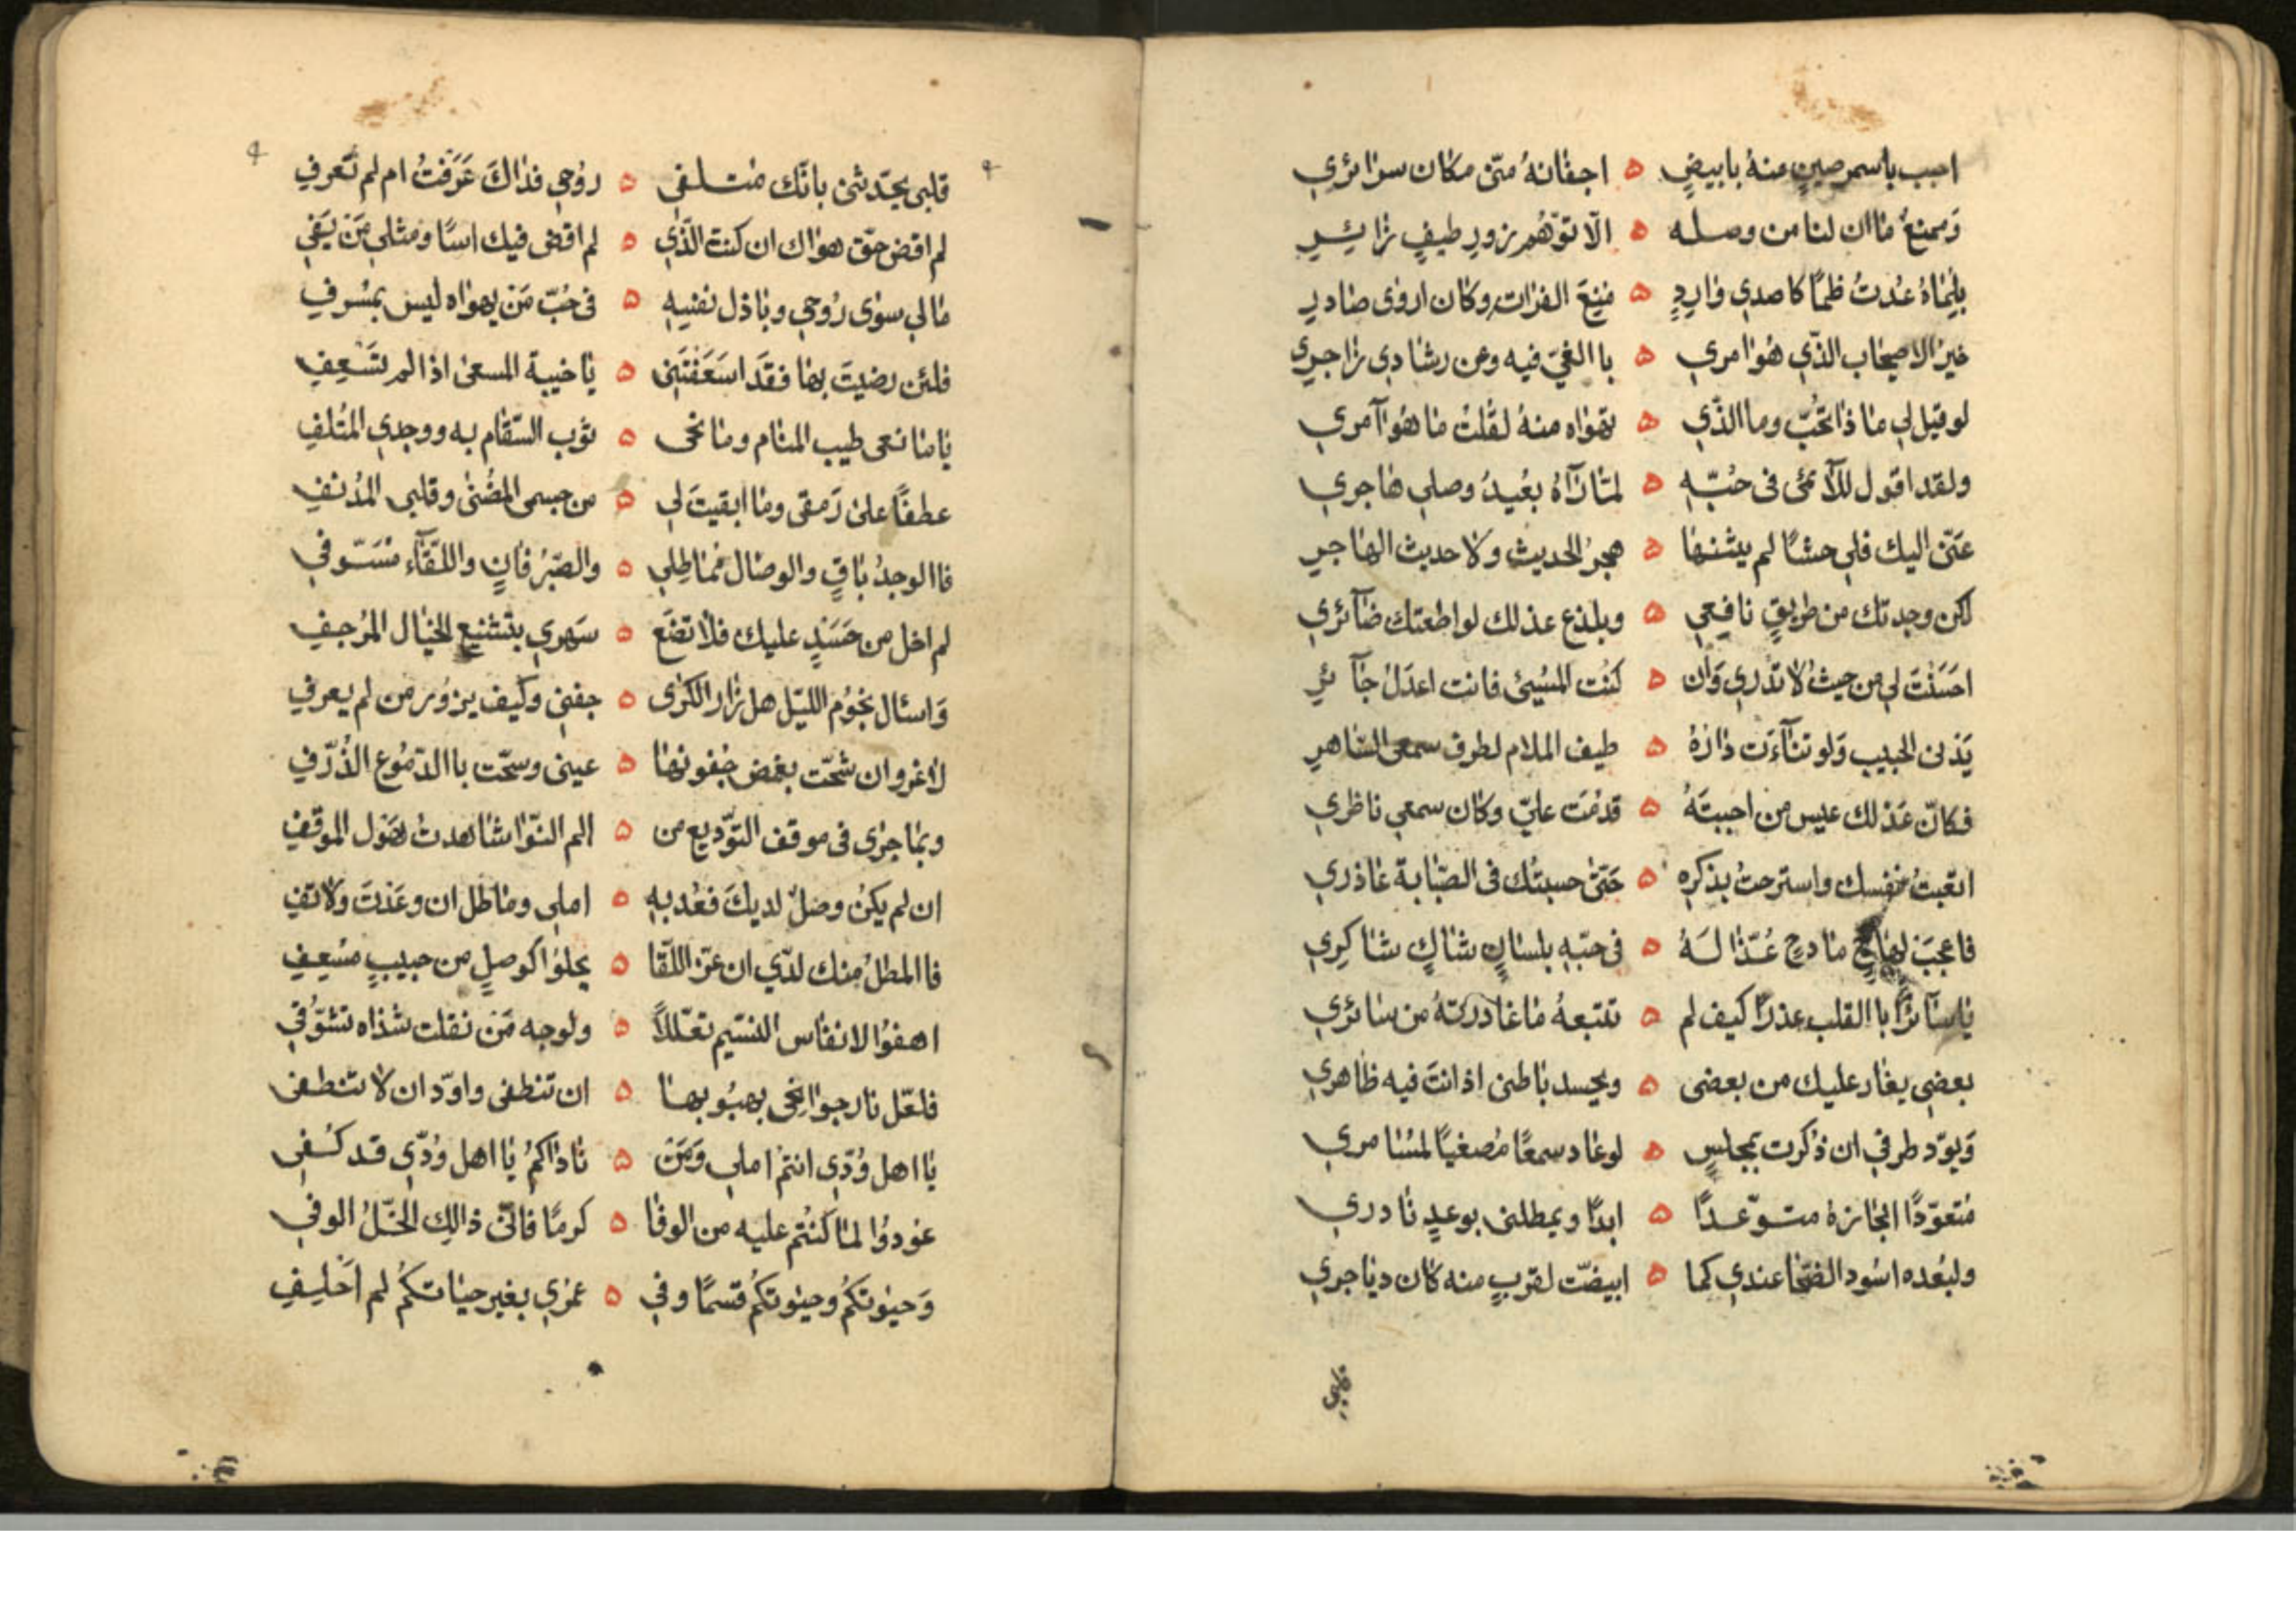 احبب باسمر صين منهُ بابيضٍ ه اجفانهُ منّى مكان سرائري
وَممنعُ ما ان لنا من وصله ه الّا توّهُم زورِ طيفٍ زائِرِ
بلماهُ عُدتُ ظمًا كاصدي وارِدٍ ه مُنِعَ الفرات وكان اروى صادرِ
خير الاصيحاب الذّي هُوا مري ه باالغيّ فيه وعن رشادي زاجري
لو قيل لي ما ذا تحُبّ وما الذّي ه تهواه منهُ لقُلتُ ما هُو آمري
ولقد اقول للآئمى فى حُبّهِ ه لمّا رَآهُ بُعيدُ وصلي هاجري
عنّى اليك فلي حشًا لم يثنها ه هجرُ الحديث ولا حديث الهاجرِ
لكن وجدتك من طريقٍ نافعي ه وبلذع عذلك لو اطعتك ضآئري
احسَنتَ لي من حيثُ لا تدري وَان ه كُنت المُسِيئ فانت اعدَلُ جآئرِ
يَدنى الحبيب وَلو تنآءَت دارُهُ ه طيف الملام لطرف سمعى السّاهرِ
فكانّ عَذلك عيس من احببتَهُ ه قدمَت عليّ وكان سمعي ناظري
اتعبتُ نفسك واسترحتُ بذكرهِ ه حَتّى حسبتُك فى الصّبابة عاذري
فاعجَب لهاجٍ مادحٍ عُذّا لَهُ ه فى حبّهِ بلسان شاكٍ شاكِرِي
يا سآئرًا باالقلب عذرًا كيف لم ه تتبعهُ ما غادرتهُ من سائري
بعضي يغار عليك من بعضى ه ويحسد باطنى اذ انتَ فيه ظاهري
وَيوّد طرفي ان ذُكرت بمجلسٍ ه لو عاد سمعًا مُصغيًا لمُسامري
مُتعوّدًا انجازهُ متوّعدًا ه ابدًا ويمطلنى بوعدٍ نادري
ولبُعده اسُود الضّحا عندي كما ه ابيضّت لقربٍ منه كان دياجري
قلبي
قلبى يحدّثنى بانّك متلفى ه رُوحي فداكَ عَرَفتُ ام لم تَعرفِ
لم اقض حقّ هواك ان كنت الذّي ه لم اقض فيك اسًا ومثلي مَن يَفي
مالي سوى رُوحي وباذل نفسِهِ ه فى حُبّ مَن يهواه ليس بمُسرفِ
فلئن رضيتَ بها فقَد اسَعَفتَنِى ه يا خيبة المسعى اذا لم تُسَعِفِ
يا مانعى طيب المنام ومانحى ه ثوب السّقام به ووجدي المُتلفِ
عطفًا على رَمقى وما ابقيتَ لي ه من جسمى المضُنى وقلبى المدُنفِ
فاالوجدُ باقٍ والوصال مُماطِلي ه والصّبرُ فانٍ واللّقآء مُسَوّفي
لم اخل من حَسَدٍ عليك فلا تضَع ه سَهري بتشنيع الخيال المُرجفِ
وَاسئال نجُوُم اللّيل هل زار الكرى ه جفنى وكيف يزوُر من لم يعرفِ
لا غروان شحّت بغمض جُفونها ه عينى وسحّت باالدّمُوع الذُرّفِ
وبما جرى فى موقف التوّديع من ه الم النّوا شاهدتُ هَوَل الموقفِ
ان لم يكنُ وصلٌ لديكَ فعُد بهِ ه املي وماطل ان وعَدتَ ولا تفِ
فاالمطلُ منك لدّي ان عزّ اللّقا ه يحلوُا كوصلٍ من حبيبٍ مُسعِفِ
اهفوُا لانفاس النسّيم تعلّلاً ه ولوجه مَن نقلت شذاه تشوّقي
فلعّل نار جوانحى بهبُوبها ه ان تنطفى واوّد ان لا تنطفى
يا اهل وُدّي انتمُ املي وَمَن ه ناداكمُ يا اهل وُدّي قد كُفى
عودوُا لما كُنتُم عليه من الوفا ه كرمًا فانّى ذالك الخّلُ الوفي
وَحيٰوتكُم وحيٰوتكُم قسمًا وفي ه عُمري بغير حياتكُم لم اَحلِفِ